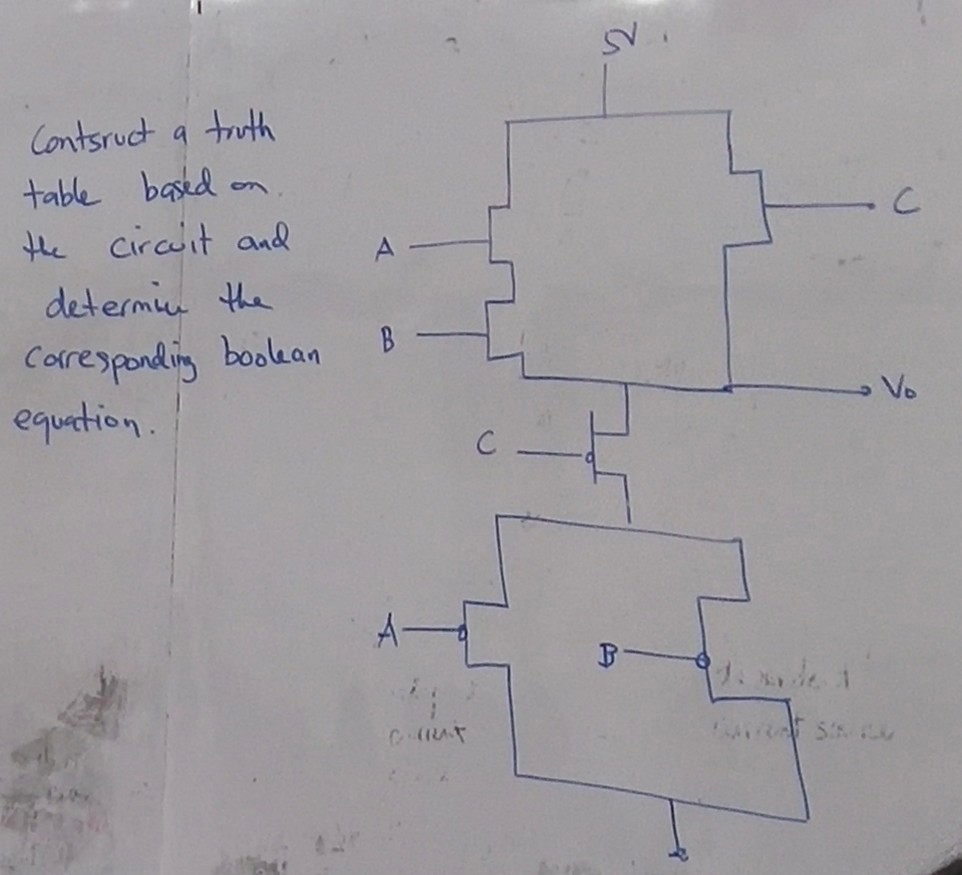 5V.
Contsruct a truth
table based on
the circuit and
determine the
corresponding boolean
equation.
C
A
B
Vo
C
A
B